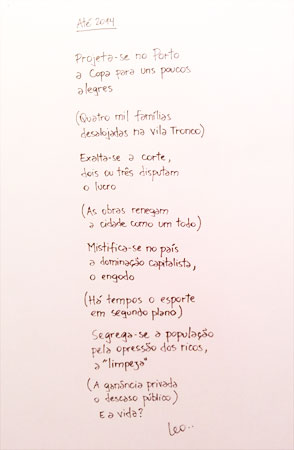 Até 2014
Projeta-se no Porto
a Copa para uns poucos
alegres
(Quatro mil famílias
desalojadas na Vila Tronco)
Exalta-se a corte,
dois ou três disputam
o lucro
(As obras renegam
a cidade como um todo)
Mistifica-se no país
a dominação capitalista,
o engodo
(Há tempos o esporte
em segundo plano)
Segrega-se a população
pela opressão dos ricos,
a "limpeza"
(A ganância privada
o descaso público)
E a vida?
Leo..